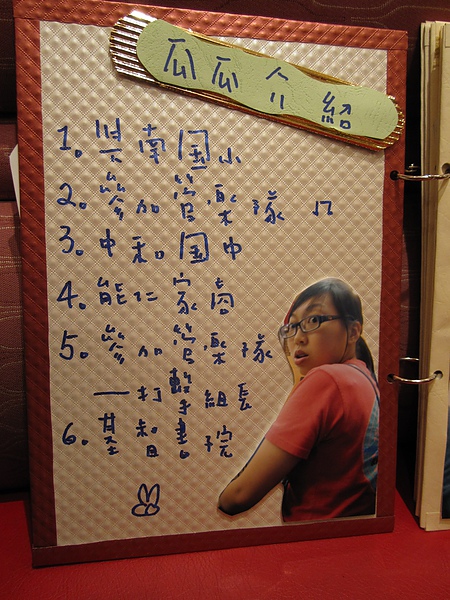 瓜瓜介紹
1。興南国小
2。參加管樂隊
3。中和国中
4。能仁家商
5。參加管樂隊
—打擊組長
6。基智書院